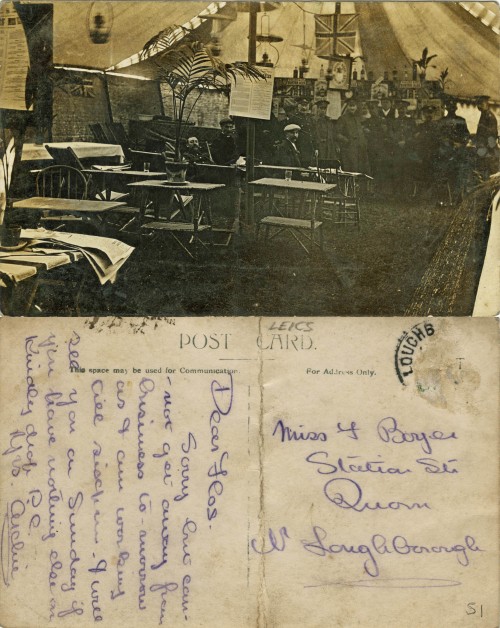 POST CARD.
LEICS
This space may be used for Communication.
For Address Only.
LOUGHB
Dear Flos.
Sorry but can-
-not get away from
business to-morrow
as I am working
till six p.m. I will
see you on Sunday if
you have nothing else on
Kindly drop P.C.
Yrs. Archie
Miss F Boyer
Station St.
Quorn
Nr Loughborough
51